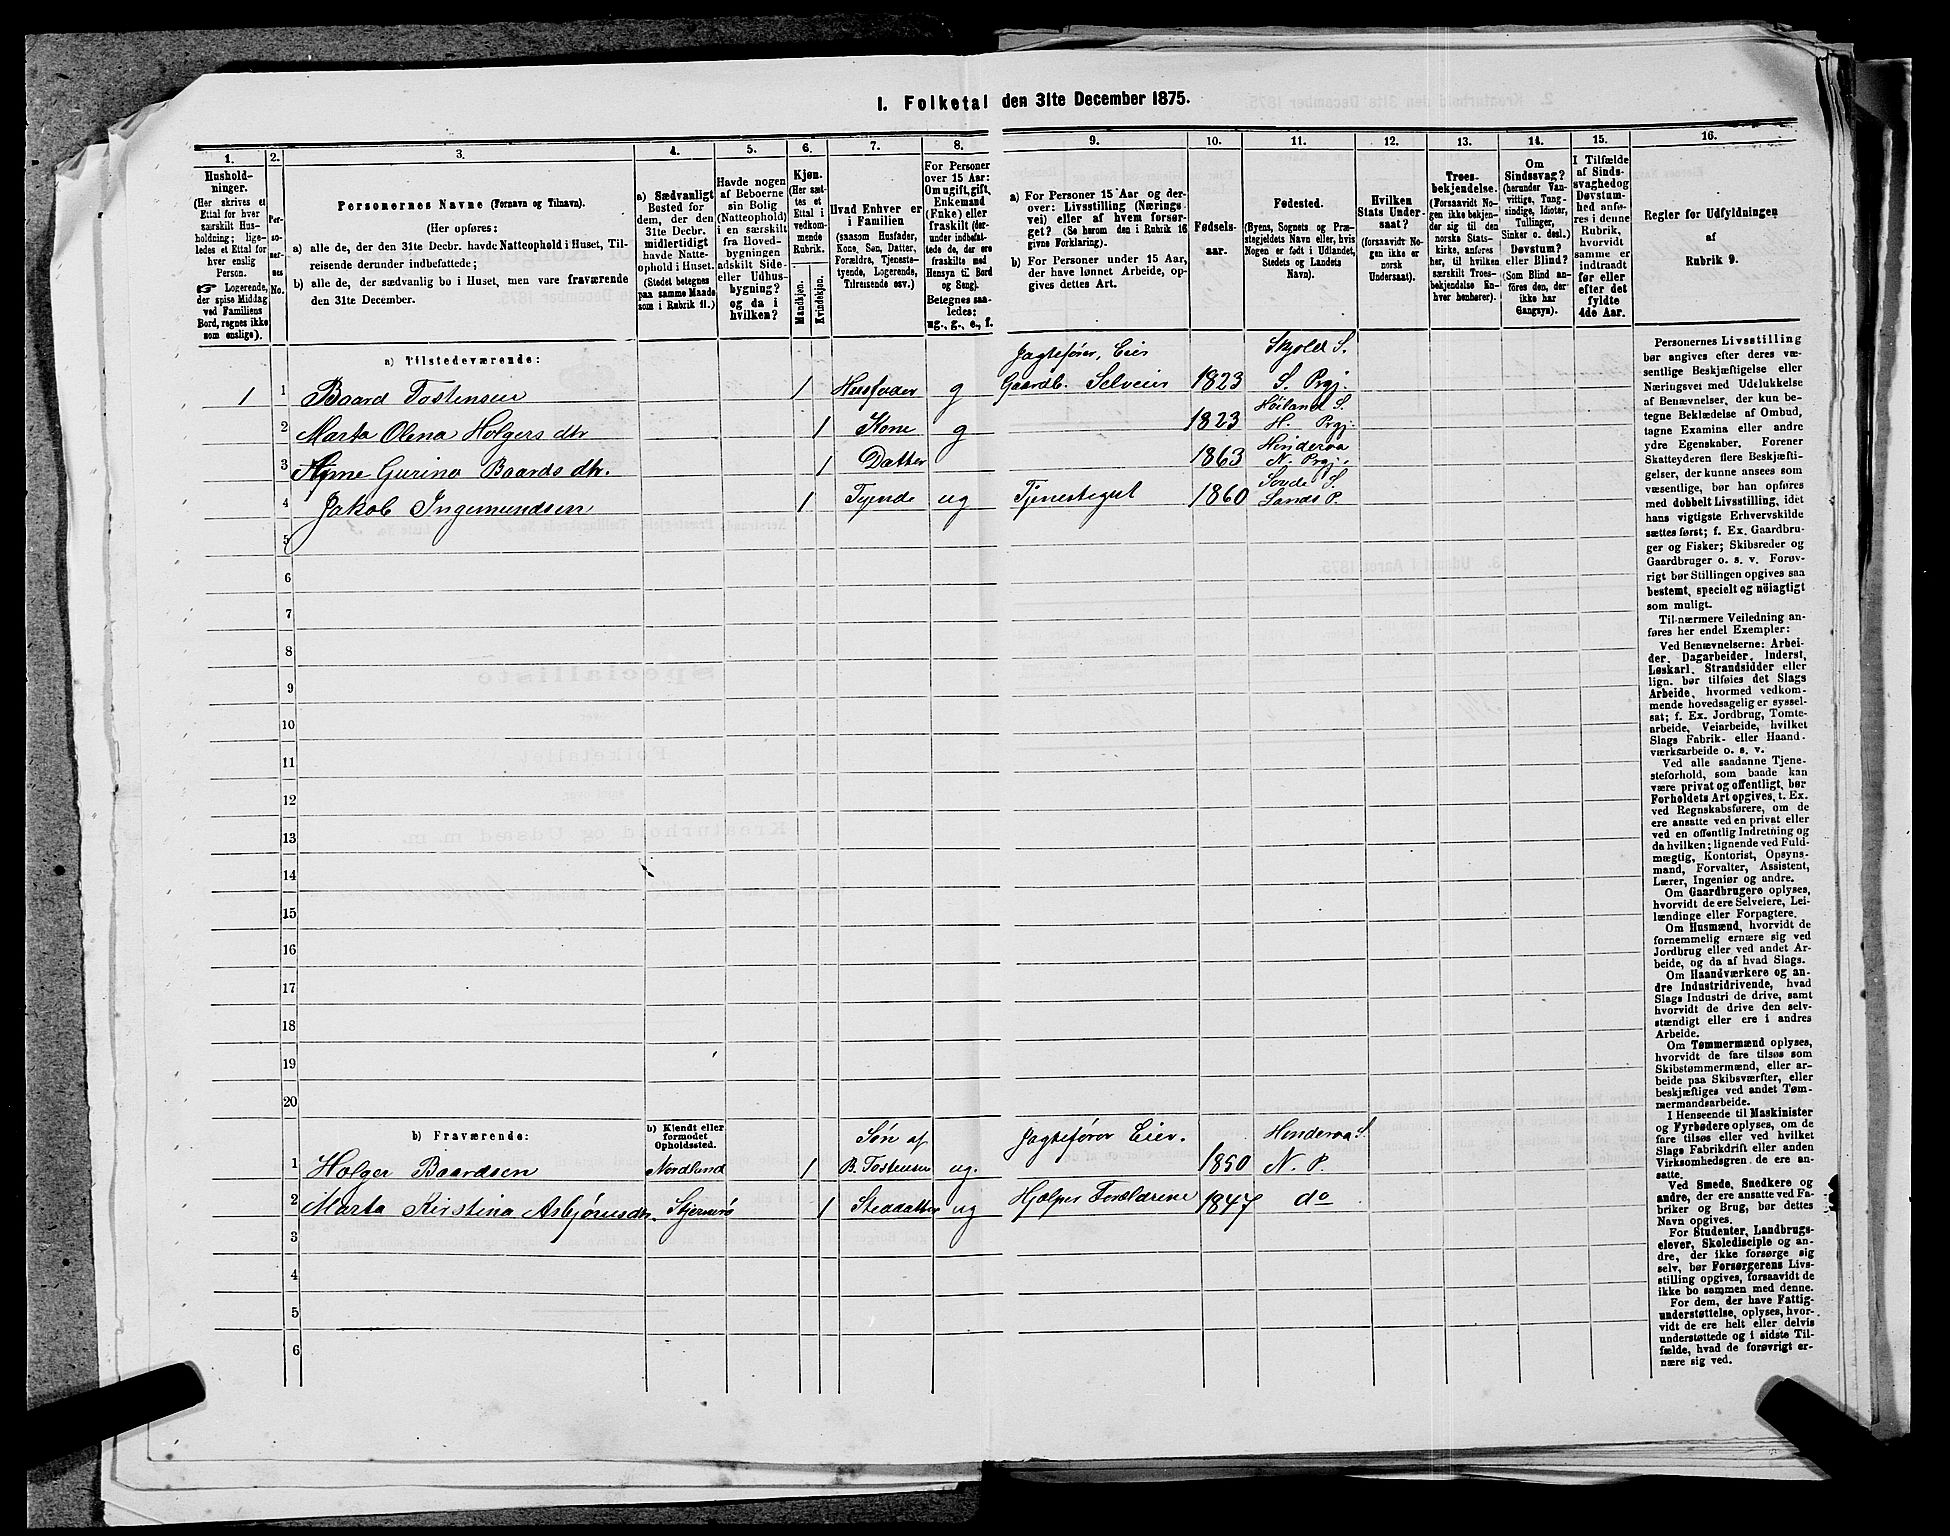 1. Folketal den 31te December 1875.
1.
Hushold-
ninger.
(Her skrives et
Ettal for hver
særskilt Hus-
holdning; lige-
ledes et Ettal for
hver enslig
Person.
☞ Logerende,
der spise Middag
ved Familiens
Bord, regnes ikke
som enslige).
2.
Per-
so-
ner-
nes
No.
3.
Personernes Navne (Fornavn og Tilnavn).
(Her opføres:
a) alle de, der den 31te Decbr. havde Natteophold i Huset, Til-
reisende derunder indbefattede;
b) alle de, der sædvanlig bo i Huset, men vare fraværende
den 31te December.
4.
a) Sædvanligt
Bosted for
dem, der den
31te Decbr.
midlertidigt
havde Natte-
ophold i Huset.
(Stedet betegnes
paa samme Maade
som i Rubrik 11.)
5.
Havde nogen
af Beboerne
sin Bolig
(Natteophold)
i en særskilt
fra Hoved-
bygningen
adskilt Side-
eller Udhus-
bygning?
og da i
hvilken?
6.
Kjøn.
(Her sæt-
tes et
Ettal i
vedkom-
mende
Rubrik.
Mandkjøn.
Kvindekjøn.
7.
Hvad Enhver er
i Familien
(saasom Husfader,
Kone, Søn, Datter,
Forældre, Tjeneste-
tyende, Logerende,
Tilreisende osv.)
8.
For Personer
over 15 Aar:
Om ugift, gift,
Enkemand
(Enke) eller
fraskilt (der-
under indbefat-
tede de, der ere
fraskilte med
Hensyn til Bord
og Seng).
Betegnes saa-
ledes:
ug., g., e., f.
9.
a) For Personer 15 Aar og der-
over: Livsstilling (Nærings-
vei) eller af hvem forsør-
get? (Se herom den i Rubrik 16
givne Forklaring).
b) For Personer under 15 Aar,
der have lønnet Arbeide, op-
gives dettes Art.
10.
Fødsels-
aar.
11.
Fødested.
(Byens, Sognets og Præ-
stegjeldets Navn eller, hvis
Nogen er født i Udlandet,
Stedets og Landets
Navn).
12.
Hvilken
Stats Under-
saat?
(forsaavidt No-
gen ikke er
norsk
Undersaat).
13.
Troes-
bekjendelse.
(Forsaavidt No-
gen ikke bekjen-
der sig til den
norske Stats-
kirke, anføres
her, til hvilken
særskilt Troes-
bekjendelse En-
hver henhører).
14.
Om
Sindssvag?
(herunder Van-
vittige, Tung-
sindige, Idioter,
Tullinger,
Sinker o. desl.)
Døvstum?
eller Blind?
(Som Blind an-
føres den, der
ikke har
Gangsyn).
15.
I Tilfælde
af Sinds-
svaghed og
Døvstum-
hed anfø-
res i denne
Rubrik,
hvorvidt
samme er
indtraadt
før eller
efter det
fyldte
4de Aar.
16.
Regler for Udfyldningen
af
Rubrik 9.
a) Tilstedeværende:
Jagtefører, Eier
Skjold S.
1 1 Baard Tostensen 1 Husfader g Gaardb. Selveier 1823 S. Prgj.
Høiland S.
2 Marta Olena Holgers dtr 1 Kone g 1823 H. Prgj.
Hinderaa
3 Ane Gurina Baards dtr. 1 Datter 1863 N. Prgj.
Sovde S.
4 Jakob Ingemundsen 1 Tyende ug Tjenestegut 1860 Sands P.
5
6
7
8
9
10
11
12
13
14
15
16
17
18
19
20
b) Fraværende:
b) Kjendt eller
formodet
Opholdssted.
Søn af
Jagtefører Eier.
Hinderaa S.
1 Holger Baardsen Nordland 1 B. Tostensen ug. 1850 N. P.
2 Marta Kirstina Asbjørnsdtr. Stjernerø 1 Steddatter ug Hjælper Forældrene 1847 do
3
4
5
6
Personernes Livsstilling
bør angives efter deres væ-
sentlige Beskjæftigelse eller
Næringsvei med Udelukkelse
af Benævnelser, der kun be-
tegne Beklædelse af Ombud,
tagne Examina eller andre
ydre Egenskaber. Forener
Skatteyderen flere Beskjæfti-
gelser, der kunne ansees som
væsentlige, bør han opføres
med dobbelt Livsstilling, idet
hans vigtigste Erhvervskilde
sættes først; f. Ex. Gaardbru-
ger og Fisker; Skibsreder og
Gaardbruger o. s. v. Forøv-
rigt bør Stillingen opgives saa
bestemt, specielt og nöiagtigt
som muligt.
Til nærmere Veiledning an-
føres her endel Exempler:
Ved Benævnelserne: Arbei-
der, Dagarbeider, Inderst,
Løskarl, Strandsidder eller
lign. bør tilføies det Slags
Arbeide, hvormed vedkom-
mende hovedsagelig er syssel-
sat; f. Ex. Jordbrug, Tomte-
arbeide, Veiarbeide, hvilket
Slags Fabrik- eller Haand-
værksarbeide o. s. v.
Ved alle saadanne Tjene-
steforhold, som baade kan
være privat og offentligt, bør
Forholdets Art opgives, t. Ex.
ved Regnskabsførere, om de
ere ansatte ved en privat eller
ved en offentlig Indretning og
da hvilken; lignende ved Fuld-
mægtig, Kontorist, Opsyns-
mand, Forvalter, Assistent,
Lærer, Ingeniør og andre.
Om Gaardbrugere oplyses,
hvorvidt de ere Selveiere, Lei-
lændinge eller Forpagtere.
Om Husmænd, hvorvidt de
fornemmelig ernære sig ved
Jordbrug eller ved andet Ar-
beide, og da af hvad Slags.
Om Haandværkere og an-
dre Industridrivende, hvad
Slags Industri de drive, samt
hvorvidt de drive den selv-
stændigt eller ere i andres
Arbeide.
Om Tømmermænd oplyses,
hvorvidt de fare tilsøs som
Skibstømmermænd, eller ar-
beide paa Skibsværfter, eller
beskjæftiges ved andet Tøm-
mermandsarbeide.
I Henseende til Maskinister
og Fyrbødere oplyses, om de
fare tilsøs eller ved hvilket
Fabrikdrift eller anden
Virksomhedsgren de ere an-
satte.
Ved Smede, Snedkere og
andre, der ere ansatte ved Fa-
briker og Brug, bør dettes
Navn opgives.
For Studenter, Landbrugs-
elever, Skoledisciple og an-
dre, der ikke forsørge sig
selv, bør Forsørgerens Livs-
stilling opgives, forsaavidt de
ikke bo sammen med denne.
For dem, der have Fattig-
understøttelse, oplyses, hvor-
vidt de ere helt eller delvis
understøttede og i sidste Til-
fælde, hvad de forøvrigt er-
nære sig ved.